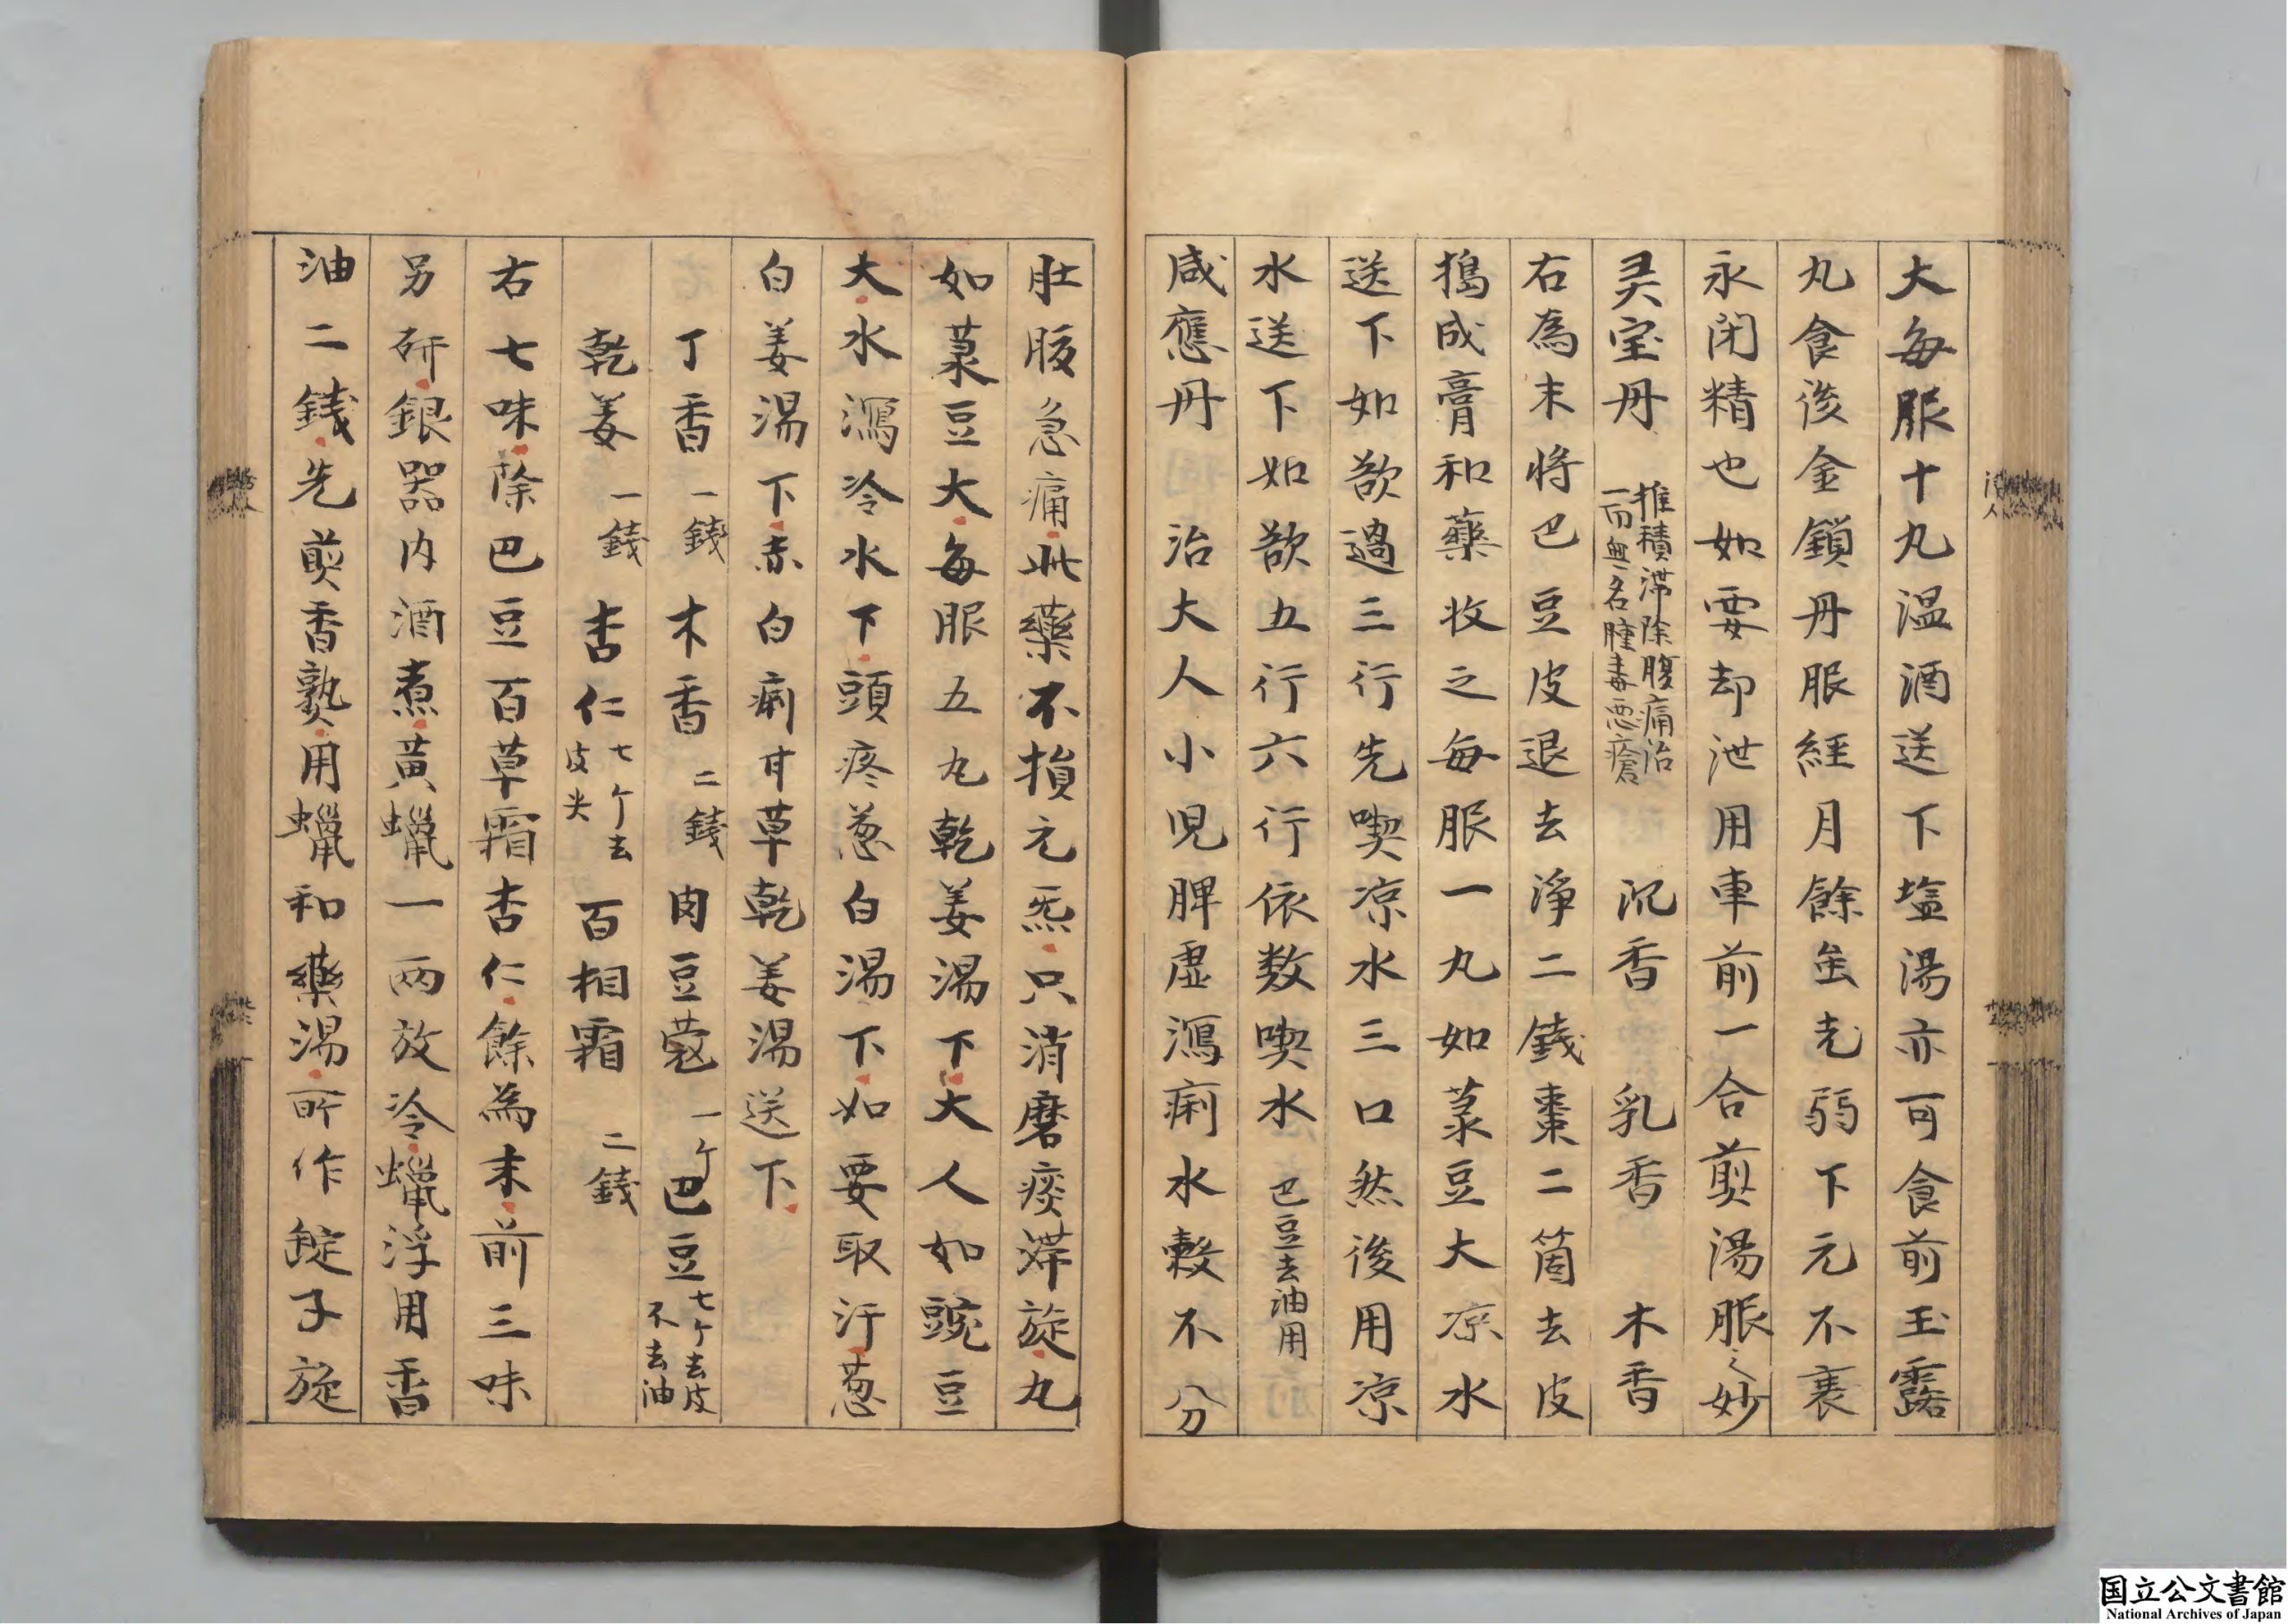 大每服十丸温酒送下塩湯亦可食前玉露
丸食後金鎖丹服経月餘虽老弱下元不衰
永閉精也如要却泄用車前一合煎湯服之妙
灵宝丹 推積滞除腹痛治一而無名腫毒悪瘡 沉香 乳香 木香
右為末将巴豆皮退去淨二錢棗二箇去皮
搗成膏和藥收之每服一丸如菉豆大凉水
送下如欲過三行先喫凉水三口然後用凉
水送下如欲五行六行依数喫水 巴豆去油用
咸應丹 治大人小児脾虚瀉痢水穀不分
肚腹急痛此藥不損元炁只消磨痰滞旋丸
如菉豆大每服五丸乾姜湯下大人如豌豆
大水瀉冷水下頭疼葱白湯下如要取汗葱
白姜湯下赤白痢甘草乾姜湯送下
丁香 一錢 木香 二錢 肉豆蔻 一个 巴豆 七个去皮不去油
乾姜 一錢 杏仁 七个去皮尖 百相霜 二錢
右七味除巴豆百草霜杏仁餘為末前三味
另研銀器内酒煮黄蠟一兩放冷蠟浮用香
油二錢先煎香熟用蠟和藥湯所作錠子旋
国立公文書館
National Archives of Japan